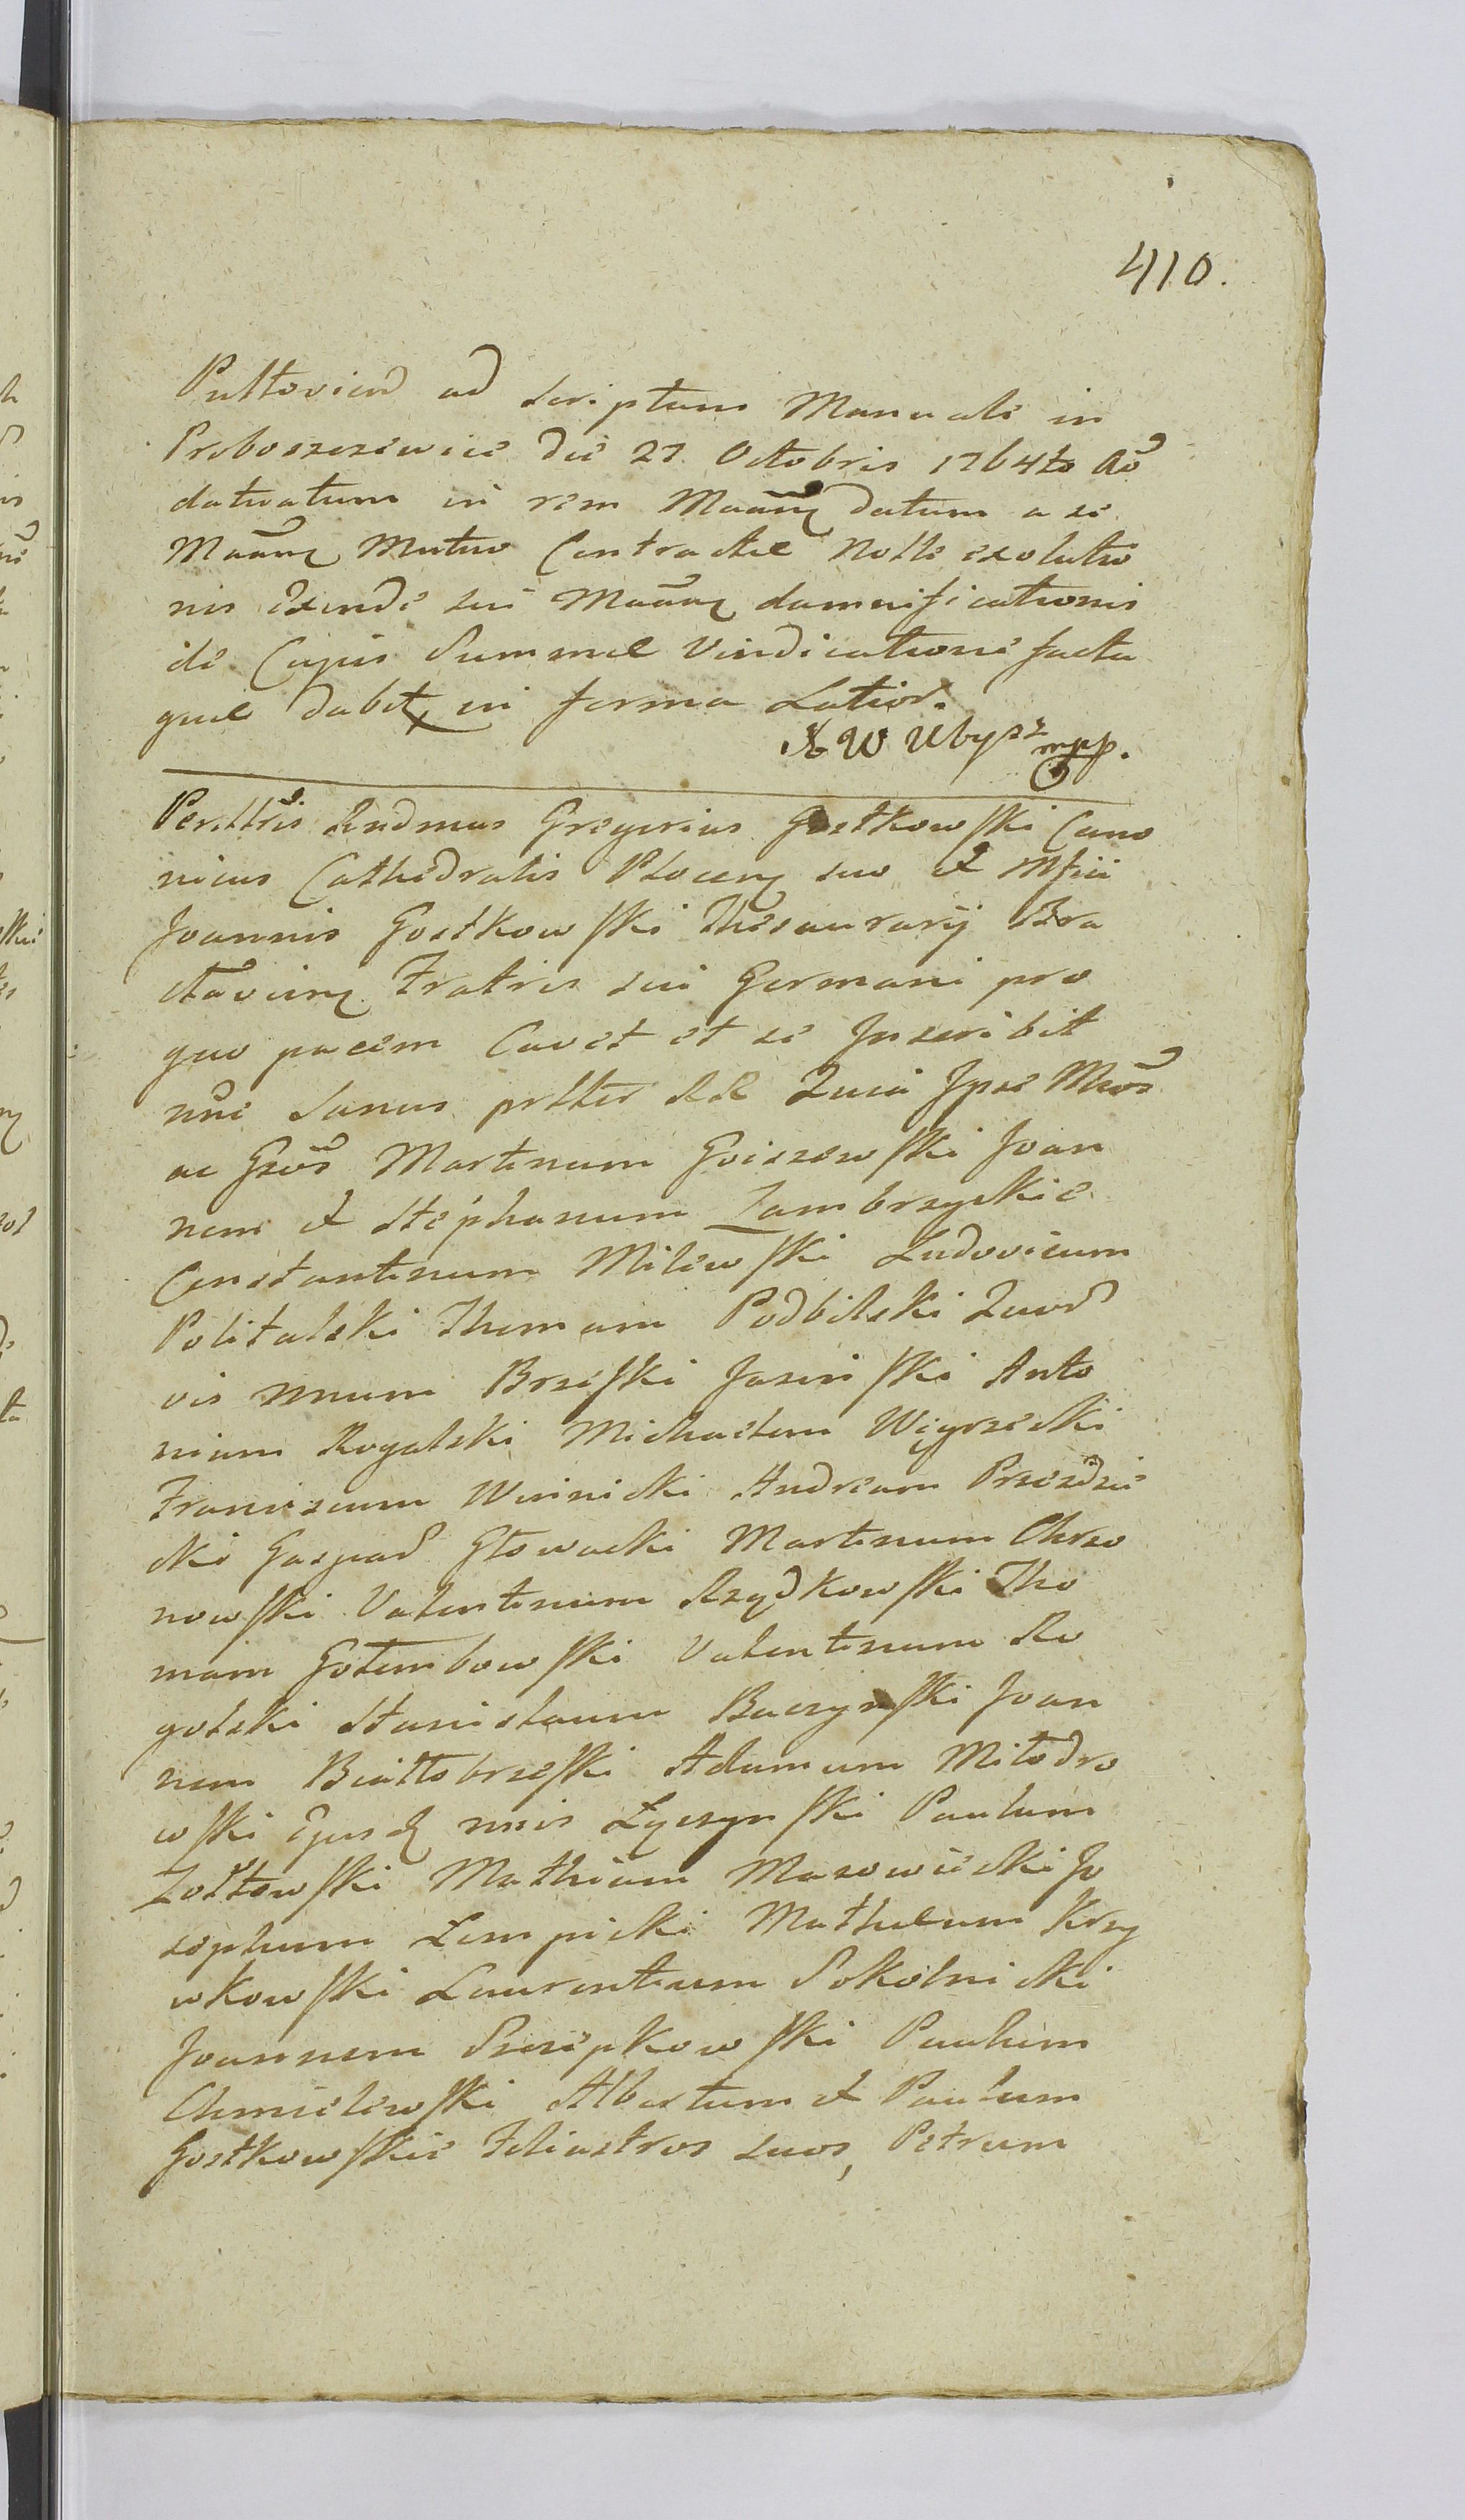 410.
Pultovien ad scriptum Manuale in
Proboszczewice die 27 Octobris 1764to Ao
datuatum in rem Maanz datum a se
Maanz Mutuo Contractae Nolle exolutio
nis Exinde sui Maanz damnificationis
de Cujus Summae Vindicatione facta
quae dabit in forma Latior.
X W Ubysz mpp.
Perillris Rndmus Gregorius Gostkowski Cano
nicus Cathedralis Plocenz suo et Mfici
Joannis Gostkowski Thesaurarij Bra
clavienz Fratris sui Germani pro
quo pacem Cavet et se Inscribit
nne Sanus prtter RR Quia Ipse Mcos
ac Gsos Martinum Goiszewski Joan
nem et Stephanum Zambrzyckie
Constantinum Milewski Ludovicum
Politalski Thomam Podbilski Quor
vis nnum Brzeski Jasinski Anto
nium Rogalski Michaelem Węgrzecki
Franciscum Winnicki Andream Przezdzie
cki Gaspar Głowacki Martinum Chrzo
nowski Valentinum Rządkowski Tho
mam Gołembowski Valentinum Ro
golski Stanislaum Baczynski Joan
nem Białłobrzeski Adamum Miłodro
wski Ejusdz nnis Łączynski Paulum
Zołtowski Mathiam Mazowiecki Jo
sephum Lempicki Mathaeum Krzy
wkowski Laurentium Sokolnicki
Joannem Szczepkowski Paulum
Chmielewski Albertum et Paulum
Gostkowskie Filiastros suos, Petrum